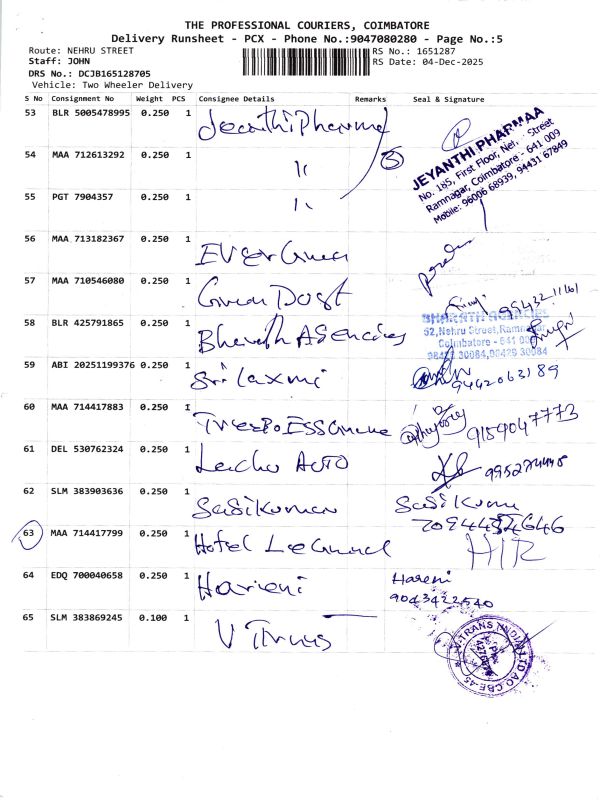 THE PROFESSIONAL COURIERS, COIMBATORE
Delivery Runsheet - PCX - Phone No.:9047080280 - Page No.:5
Route: NEHRU STREET RS No.: 1651287
Staff: JOHN RS Date: 04-Dec-2025
DRS No.: DCJB165128705
Vehicle: Two Wheeler Delivery
S No Consignment No Weight PCS Consignee Details Remarks Seal & Signature
53 BLR 5005478995 0.250 1 Jeyanthi Pharma
JEYANTHI PHARMAA
No. 185, First Floor, Street
Ramnagar, Coimbatore - 641 009
Mobile: 96006 68939, 94431 67849
54 MAA 712613292 0.250 1 "
55 PGT 7904357 0.250 1 "
56 MAA 713182367 0.250 1 Ever Green
57 MAA 710546080 0.250 1
58 BLR 425791865 0.250 1 Bharath Agencies
BHARATH AGENCIES
52, Nehru Street, Ramnagar
Coimbatore - 641 009
98422 30084, 90429 30084
59 ABI 20251199376 0.250 1 Sri Laxmi 9442063189
60 MAA 714417883 0.250 1 9159047773
61 DEL 530762324 0.250 1 AUTO
62 SLM 383903636 0.250 1 Sasikumar Sasikumar
63 MAA 714417799 0.250 1 Hotel
64 EDQ 700040658 0.250 1 Harieni Hareni
9043422540
65 SLM 383869245 0.100 1 V Trans
V-TRANS (INDIA) LTD AO CBE-45